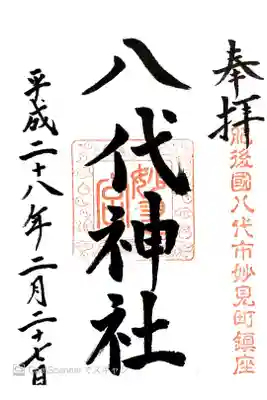 奉拝
肥後國八代市妙見町鎮座
八代神社
妙見宮
平成二十八年二月二十七日
CamScanner でスキャン